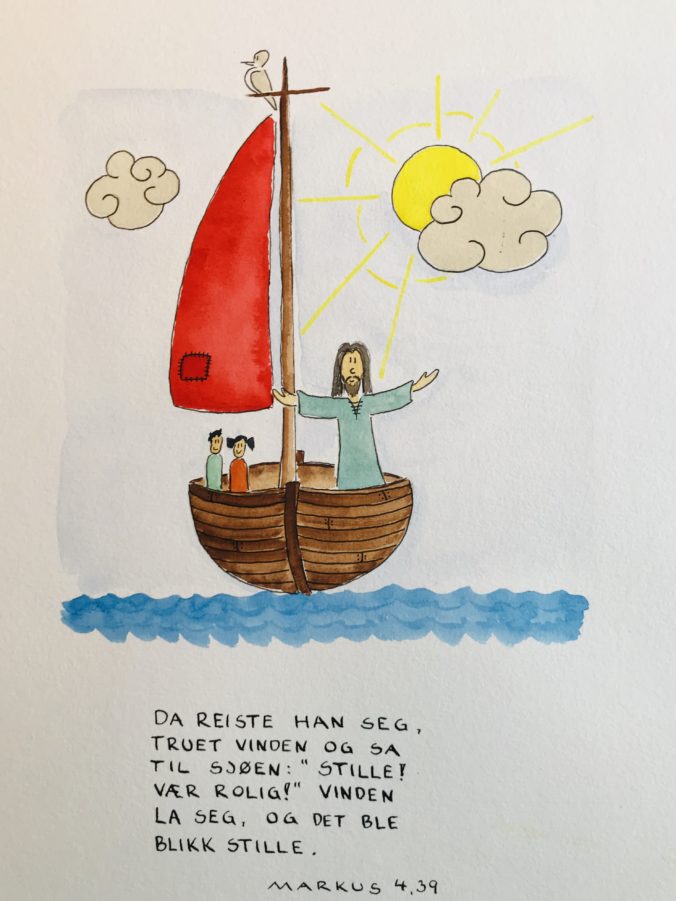 DA REISTE HAN SEG,
TRUET VINDEN OG SA
TIL SJØEN: "STILLE!
VÆR ROLIG!" VINDEN
LA SEG, OG DET BLE
BLIKK STILLE.
MARKUS 4,39